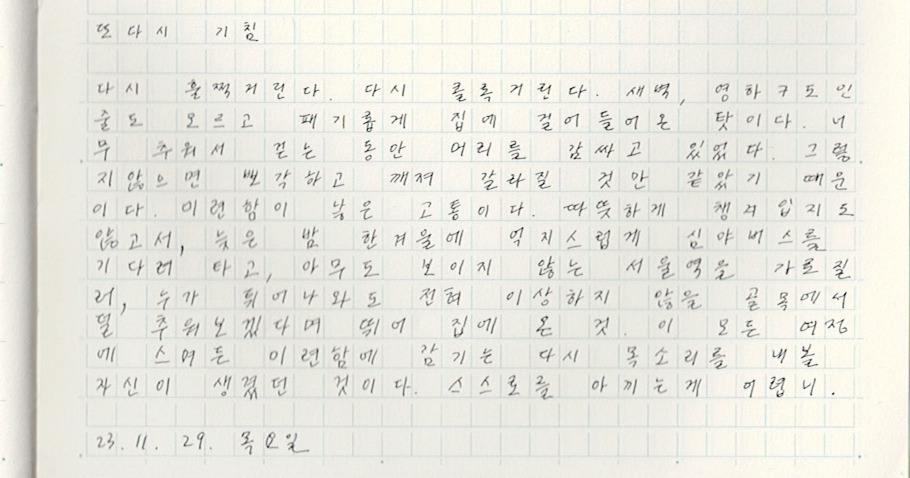 또다시 기침
다시 훌쩍거린다. 다시 콜록거린다. 새벽, 영하 9도인
줄도 모르고 패기롭게 집에 걸어들어온 탓이다. 너
무 추워서 걷는 동안 머리를 감싸고 있었다. 그렇
지 않으면 빠각하고 깨져 갈라질 것만 같았기 때문
이다. 미련함이 낳은 고통이다. 따뜻하게 챙겨입지도
않고서, 늦은 밤 한겨울에 억지스럽게 심야버스를
기다려 타고, 아무도 보이지 않는 서울역을 가로질
러, 누가 튀어나와도 전혀 이상하지 않을 골목에서
덜 추워보겠다며 뛰어 집에 온 것. 이 모든 여정
에 스며든 미련함에 감기는 다시 목소리를 내볼
자신이 생겼던 것이다. 스스로를 아끼는게 어렵니.
23. 11. 29. 목요일